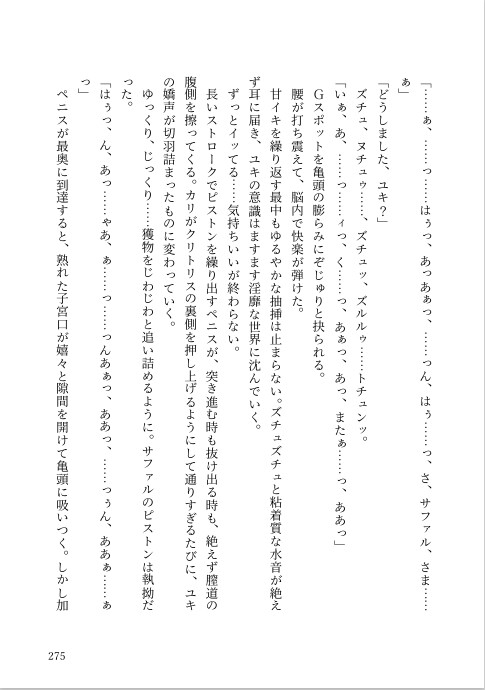 「……ぁ、……っ……はぅっ、あっあぁっ、……っん、はぅ……っ、さ、サファル、さま……
ぁ」
「どうしました、ユキ？」
ズチュ、ヌチュゥ……、ズチュッ、ズルルゥ……トチュンッ。
「いぁ、あ、……っ……ィっ、く……っ、あぁっ、あっ、またぁ……っ、ああっ」
Ｇスポットを亀頭の膨らみにぞじゅりと抉られる。
腰が打ち震えて、脳内で快楽が弾けた。
甘イキを繰り返す最中もゆるやかな抽挿は止まらない。ズチュズチュと粘着質な水音が絶え
ず耳に届き、ユキの意識はますます淫靡な世界に沈んでいく。
ずっとイッてる……気持ちいいが終わらない。
長いストロークでピストンを繰り出すペニスが、突き進む時も抜け出る時も、絶えず膣道の
腹側を擦ってくる。カリがクリトリスの裏側を押し上げるようにして通りすぎるたびに、ユキ
の嬌声が切羽詰まったものに変わっていく。
ゆっくり、じっくり……獲物をじわじわと追い詰めるように。サファルのピストンは執拗だ
った。
「はぅっ、ん、あっ……ゃあ、ぁ……っ……っんあぁっ、ああっ、……っぅん、ああぁ……ぁ
っ」
ペニスが最奥に到達すると、熟れた子宮口が嬉々と隙間を開けて亀頭に吸いつく。しかし加
275